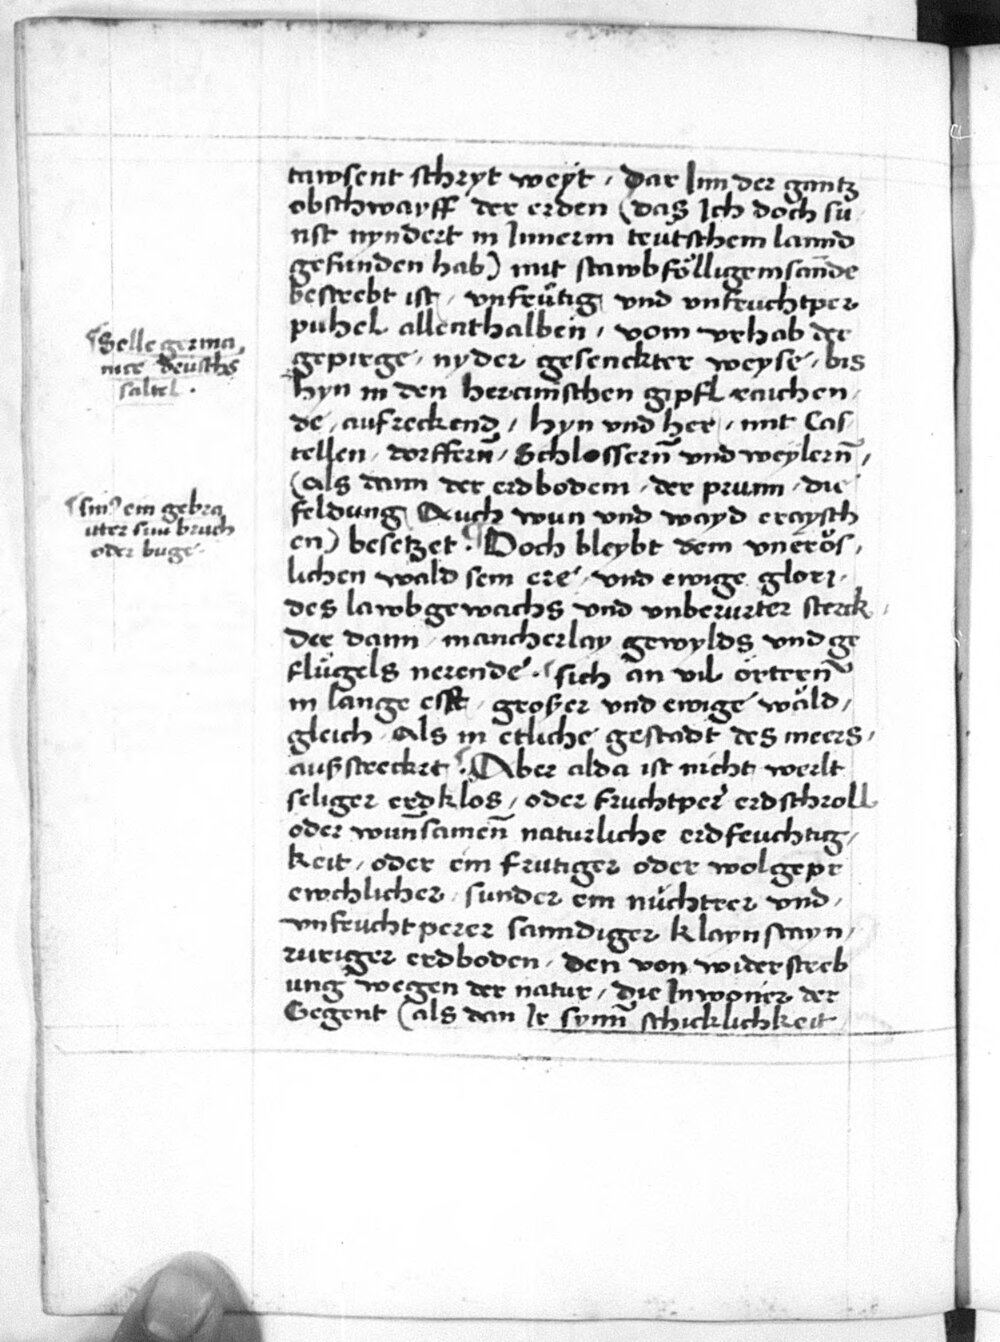 tawsent schryt weyt, Dar Inn der gantz
obschwayff der erden (das Ich doch su
nst nyndert in Innerm teutschem lannd
gefunden hab) mit stawbfölligem sannde
bestrebt ist, vnfrütig vnd vnfruchtper
puhel allenthalben, vom vrhab der
gepirge, nyder gesenckter weyse, bis
hyn in den hercinischen gipfl raichen,
de, aufreckend, hyn vnd her, mit Cas,
tellen, dorffern, Schlossern vnd weylern,
(als dann der erdbodem, der prunn, die
feldung Auch wun vnd wayd eraysch
en) besetzet. Doch bleybt dem vnerös,
lichen wald sein ere, vnd ewige glori,
des lawbgewachs vnd vnberurter sterck,
der dann mancherlay gewylds vnd ge
flügels nerende. sich an vil örtern
in lange est, großer vnd ewige wäld,
gleich, Als in etliche gestadt des meers,
außstreckt. Aber alda ist nicht werlt
seliger erdklos, oder fruchtper erdschroll
oder wunsamen naturliche erdfeuchtig,
keit, oder ein frutiger oder wolgepr
ewchlicher, sunder ein nüchtrer vnd,
vnfruchtperer sanndiger klaynstayn,
ruriger erdboden, den von widerstreb
ung wegen der natur, die Inwoner der
Gegent (als dan Ir synn schicklichkeit
Selle germa,
nice deuschs
saltel.
sin⁹ ein gebra
uter sinn bruch
oder buge.